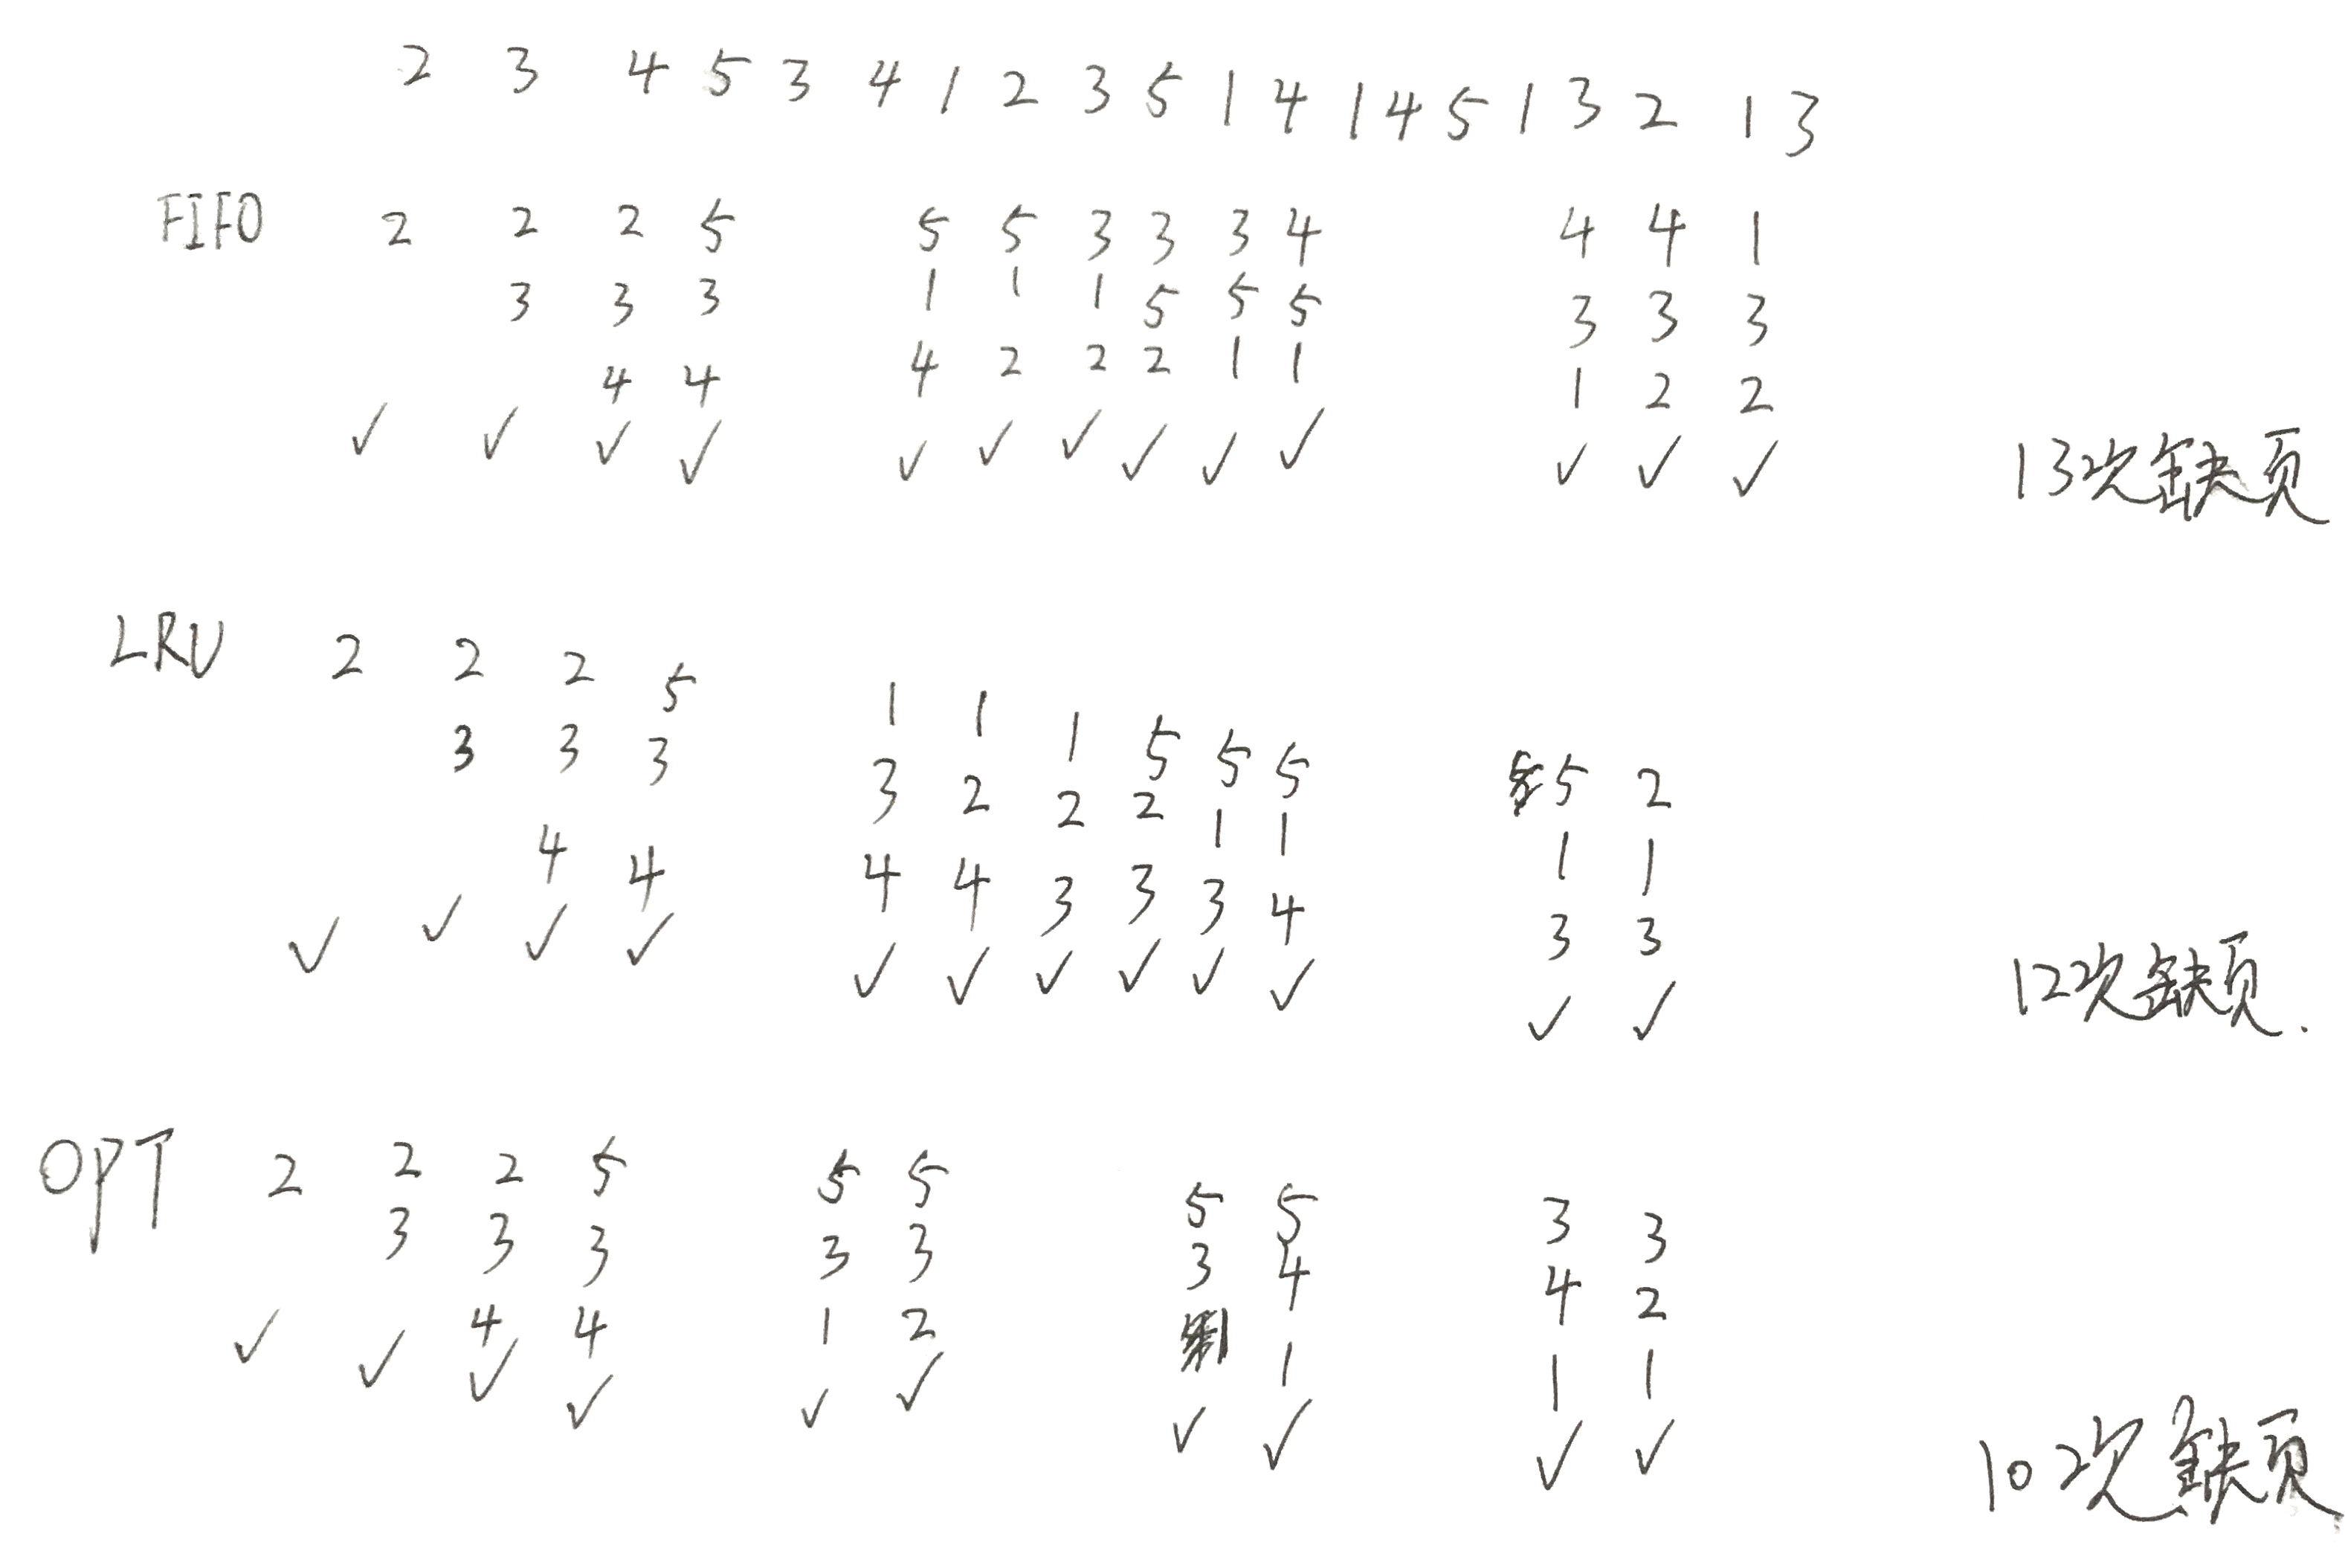 2 3 4 5 3 4 1 2 3 5 1 4 1 4 5 1 3 2 1 3
FIFO 2 2 2 5 5 5 3 3 3 4 4 4 1
3 3 3 1 1 1 5 5 5 3 3 3
4 4 4 2 2 2 1 1 1 2 2
✓ ✓ ✓ ✓ ✓ ✓ ✓ ✓ ✓ ✓ ✓ ✓ ✓ 13次缺页
LRU 2 2 2 5 1 1 1 5 5 5 5 2
3 3 3 3 2 2 2 1 1 1 1
4 4 4 4 3 3 3 4 3 3
✓ ✓ ✓ ✓ ✓ ✓ ✓ ✓ ✓ ✓ ✓ ✓ 12次缺页.
OPT 2 2 2 5 5 5 5 5 3 3
3 3 3 3 3 3 4 4 2
4 4 1 2 1 1 1 1
✓ ✓ ✓ ✓ ✓ ✓ ✓ ✓ ✓ ✓ 10次缺页